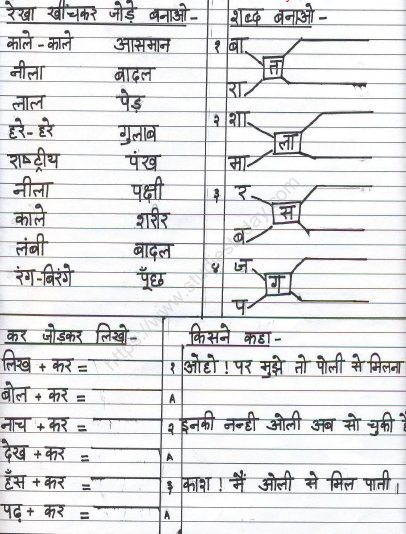 रेखा खींचकर जोड़े बनाओ-
काले-काले आसमान
नीला बादल
लाल पेड़
हरे-हरे गुलाब
राष्ट्रीय पंख
नीला पक्षी
काले शरीर
लंबी बादल
रंग-बिरंगे पूँछ
शब्द बनाओ-
१ बा
ता
रा
२ शा
ला
मा
३ र
स
ब
४ ज
ग
प
कर जोड़कर लिखो-
लिख + कर =
बोल + कर =
नाच + कर =
देख + कर =
हँस + कर =
पढ़ + कर =
किसने कहा-
१ ओहो ! पर मुझे तो पोली से मिलना
A
२ इनकी नन्ही ओली अब सो चुकी है
A
३ काश ! मैं ओली से मिल पाती ।
A
https://www.studiestoday.com